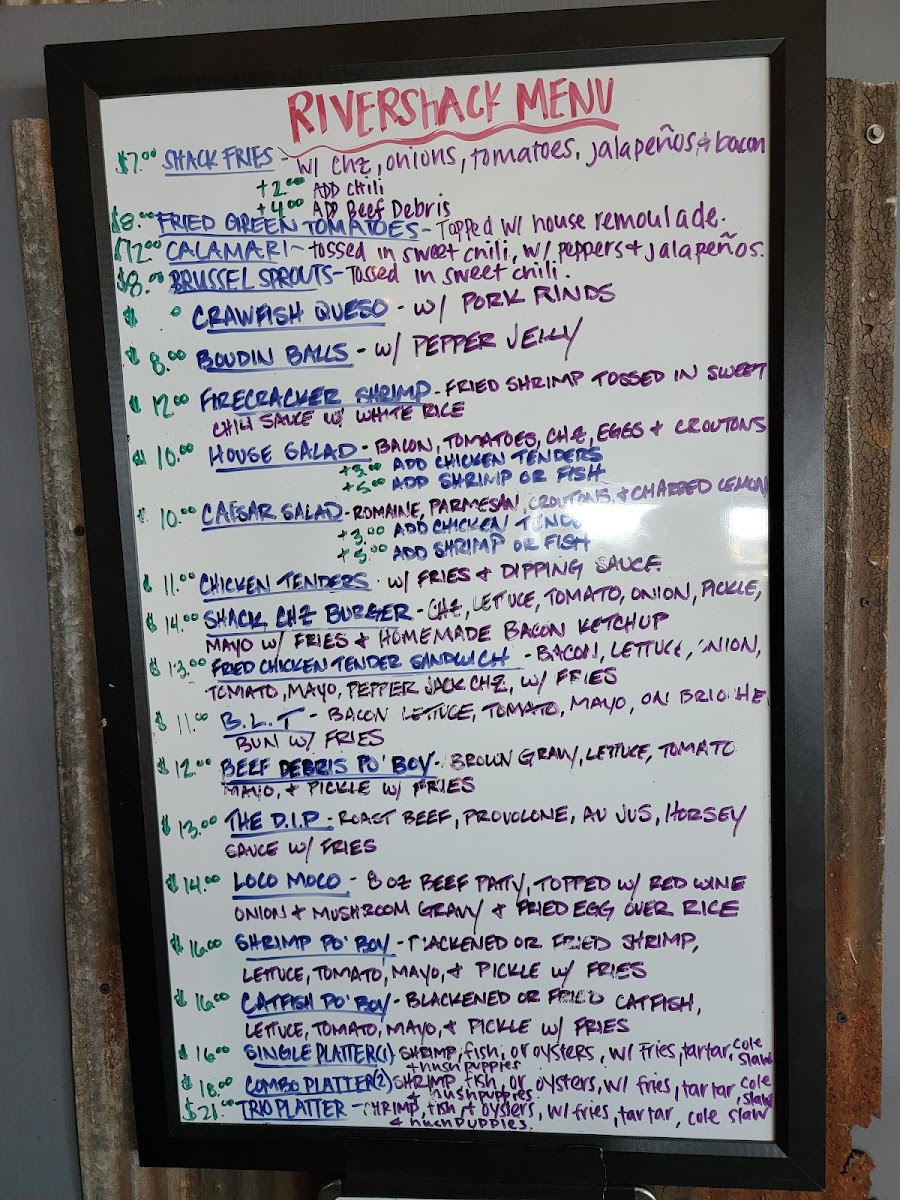 RIVERSHACK MENU
$7.00 SHACK FRIES - W/ CHZ, onions, tomatoes, jalapeños & bacon
+2.00 ADD Chili
+4.00 ADD Beef Debris
$8.00 FRIED GREEN TOMATOES - Topped w/ house remoulade.
$12.00 CALAMARI - tossed in sweet chili, w/ peppers + jalapeños.
$8.00 BRUSSEL SPROUTS - Tossed in sweet chili.
$ 0 CRAWFISH QUESO - W/ PORK RINDS
$ 8.00 BOUDIN BALLS - W/ PEPPER JELLY
$ 12.00 FIRECRACKER SHRIMP - FRIED SHRIMP TOSSED IN SWEET
CHILI SAUCE W/ WHITE RICE
$ 10.00 HOUSE SALAD - BACON, TOMATOES, CHZ, EGGS + CROUTONS
+3.00 ADD CHICKEN TENDERS
+5.00 ADD SHRIMP OR FISH
$ 10.00 CAESAR SALAD - ROMAINE, PARMESAN, CROUTONS, & CHARRED LEMON
+3.00 ADD CHICKEN TENDE
+5.00 ADD SHRIMP OR FISH
$ 11.00 CHICKEN TENDERS - W/ FRIES & DIPPING SAUCE
$ 14.00 SHACK CHZ BURGER - CHZ, LETUCE, TOMATO, ONION, PICKLE,
MAYO W/ FRIES & HOMEMADE BACON KETCHUP
$ 13.00 FRIED CHICKEN TENDER SANDWICH - BACON, LETTUCE, ONION,
TOMATO, MAYO, PEPPER JACK CHZ, W/ FRIES
$ 11.00 B.L.T - BACON LETTUCE, TOMATO, MAYO, ON BRIOCHE
BUN W/ FRIES
$ 12.00 BEEF DEBRIS PO' BOY - BROWN GRAVY, LETTUCE, TOMATO
MAYO, & PICKLE W/ FRIES
$ 13.00 THE D.I.P - ROAST BEEF, PROVOLONE, AU JUS, HORSEY
SAUCE W/ FRIES
$ 14.00 LOCO MOCO - 8 OZ BEEF PATTY, TOPPED W/ RED WINE
ONION + MUSHROOM GRAVY & FRIED EGG OVER RICE
$ 16.00 SHRIMP PO' BOY - BLACKENED OR FRIED SHRIMP,
LETTUCE, TOMATO, MAYO, & PICKLE W/ FRIES
$ 16.00 CATFISH PO' BOY - BLACKENED OR FRIED CATFISH,
LETTUCE, TOMATO, MAYO, & PICKLE W/ FRIES
$ 16.00 SINGLE PLATTER (1) SHRIMP, fish, or oysters, W/ Fries, tartar, cole slaw
+ hushpuppies
$ 18.00 COMBO PLATTER (2) SHRIMP, fish, or oysters, W/ fries, tartar, cole slaw
+ hushpuppies
$21.00 TRIO PLATTER - SHRIMP, fish, + oysters, W/ fries, tartar, cole slaw
& hushpuppies.